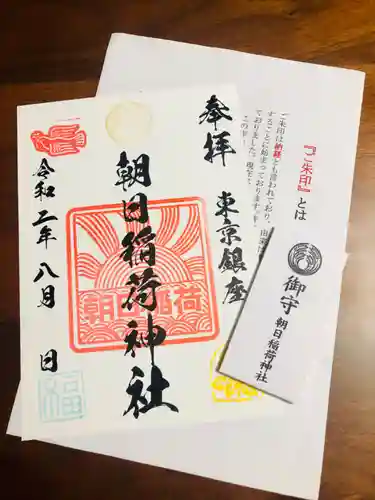 奉拝
東京銀座
朝日稲荷神社
朝日稲荷
令和二年八月 日
福
『ご朱印』とは
ご朱印は納経とも言われており、
することに始まっております。
ておりました。現在
この
御守
朝日稲荷神社